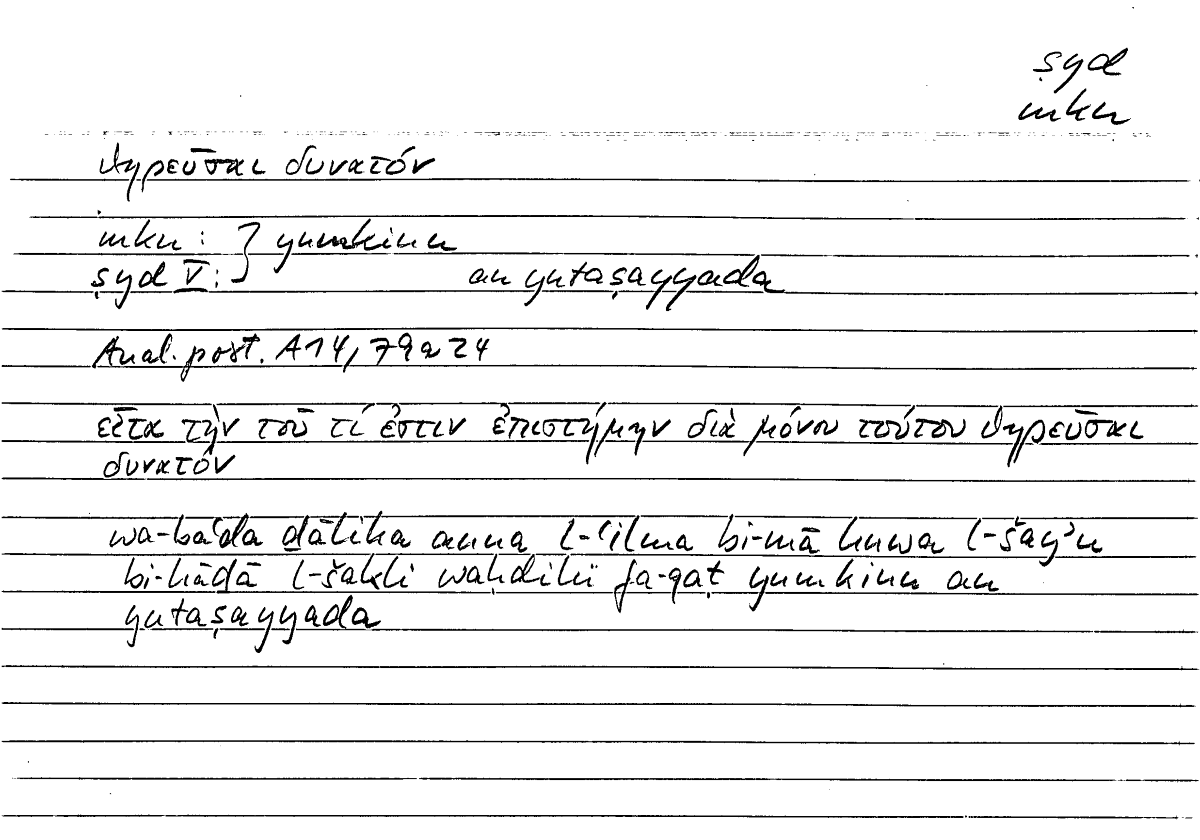 ṣyd
mkn
θηρεῦσαι δυνατόν
mkn : } yumkinu
ṣyd V : } an yutaṣayyada
Anal. post. A14, 79a24
εἶτα τὴν τοῦ τί ἐστιν ἐπιστήμην διὰ μόνου τούτου θηρεῦσαι
δυνατόν
wa-baʿda ḏālika anna l-ʿilma bi-mā huwa l-šayʾu
bi-hāḏā l-šakli waḥdihī fa-qaṭ yumkinu an
yutaṣayyada